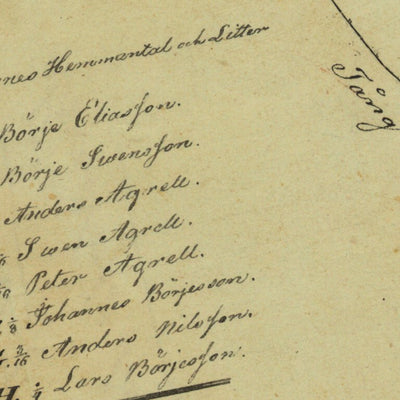 Hemmantal och Litter
Börje Eliasson.
Börje Swensson.
Anders Agrell.
Swen Agrell.
Peter Agrell.
Johannes Börjesson.
3/16 Anders Nilsson.
H. 1/4 Lars Börjesson.
Tång